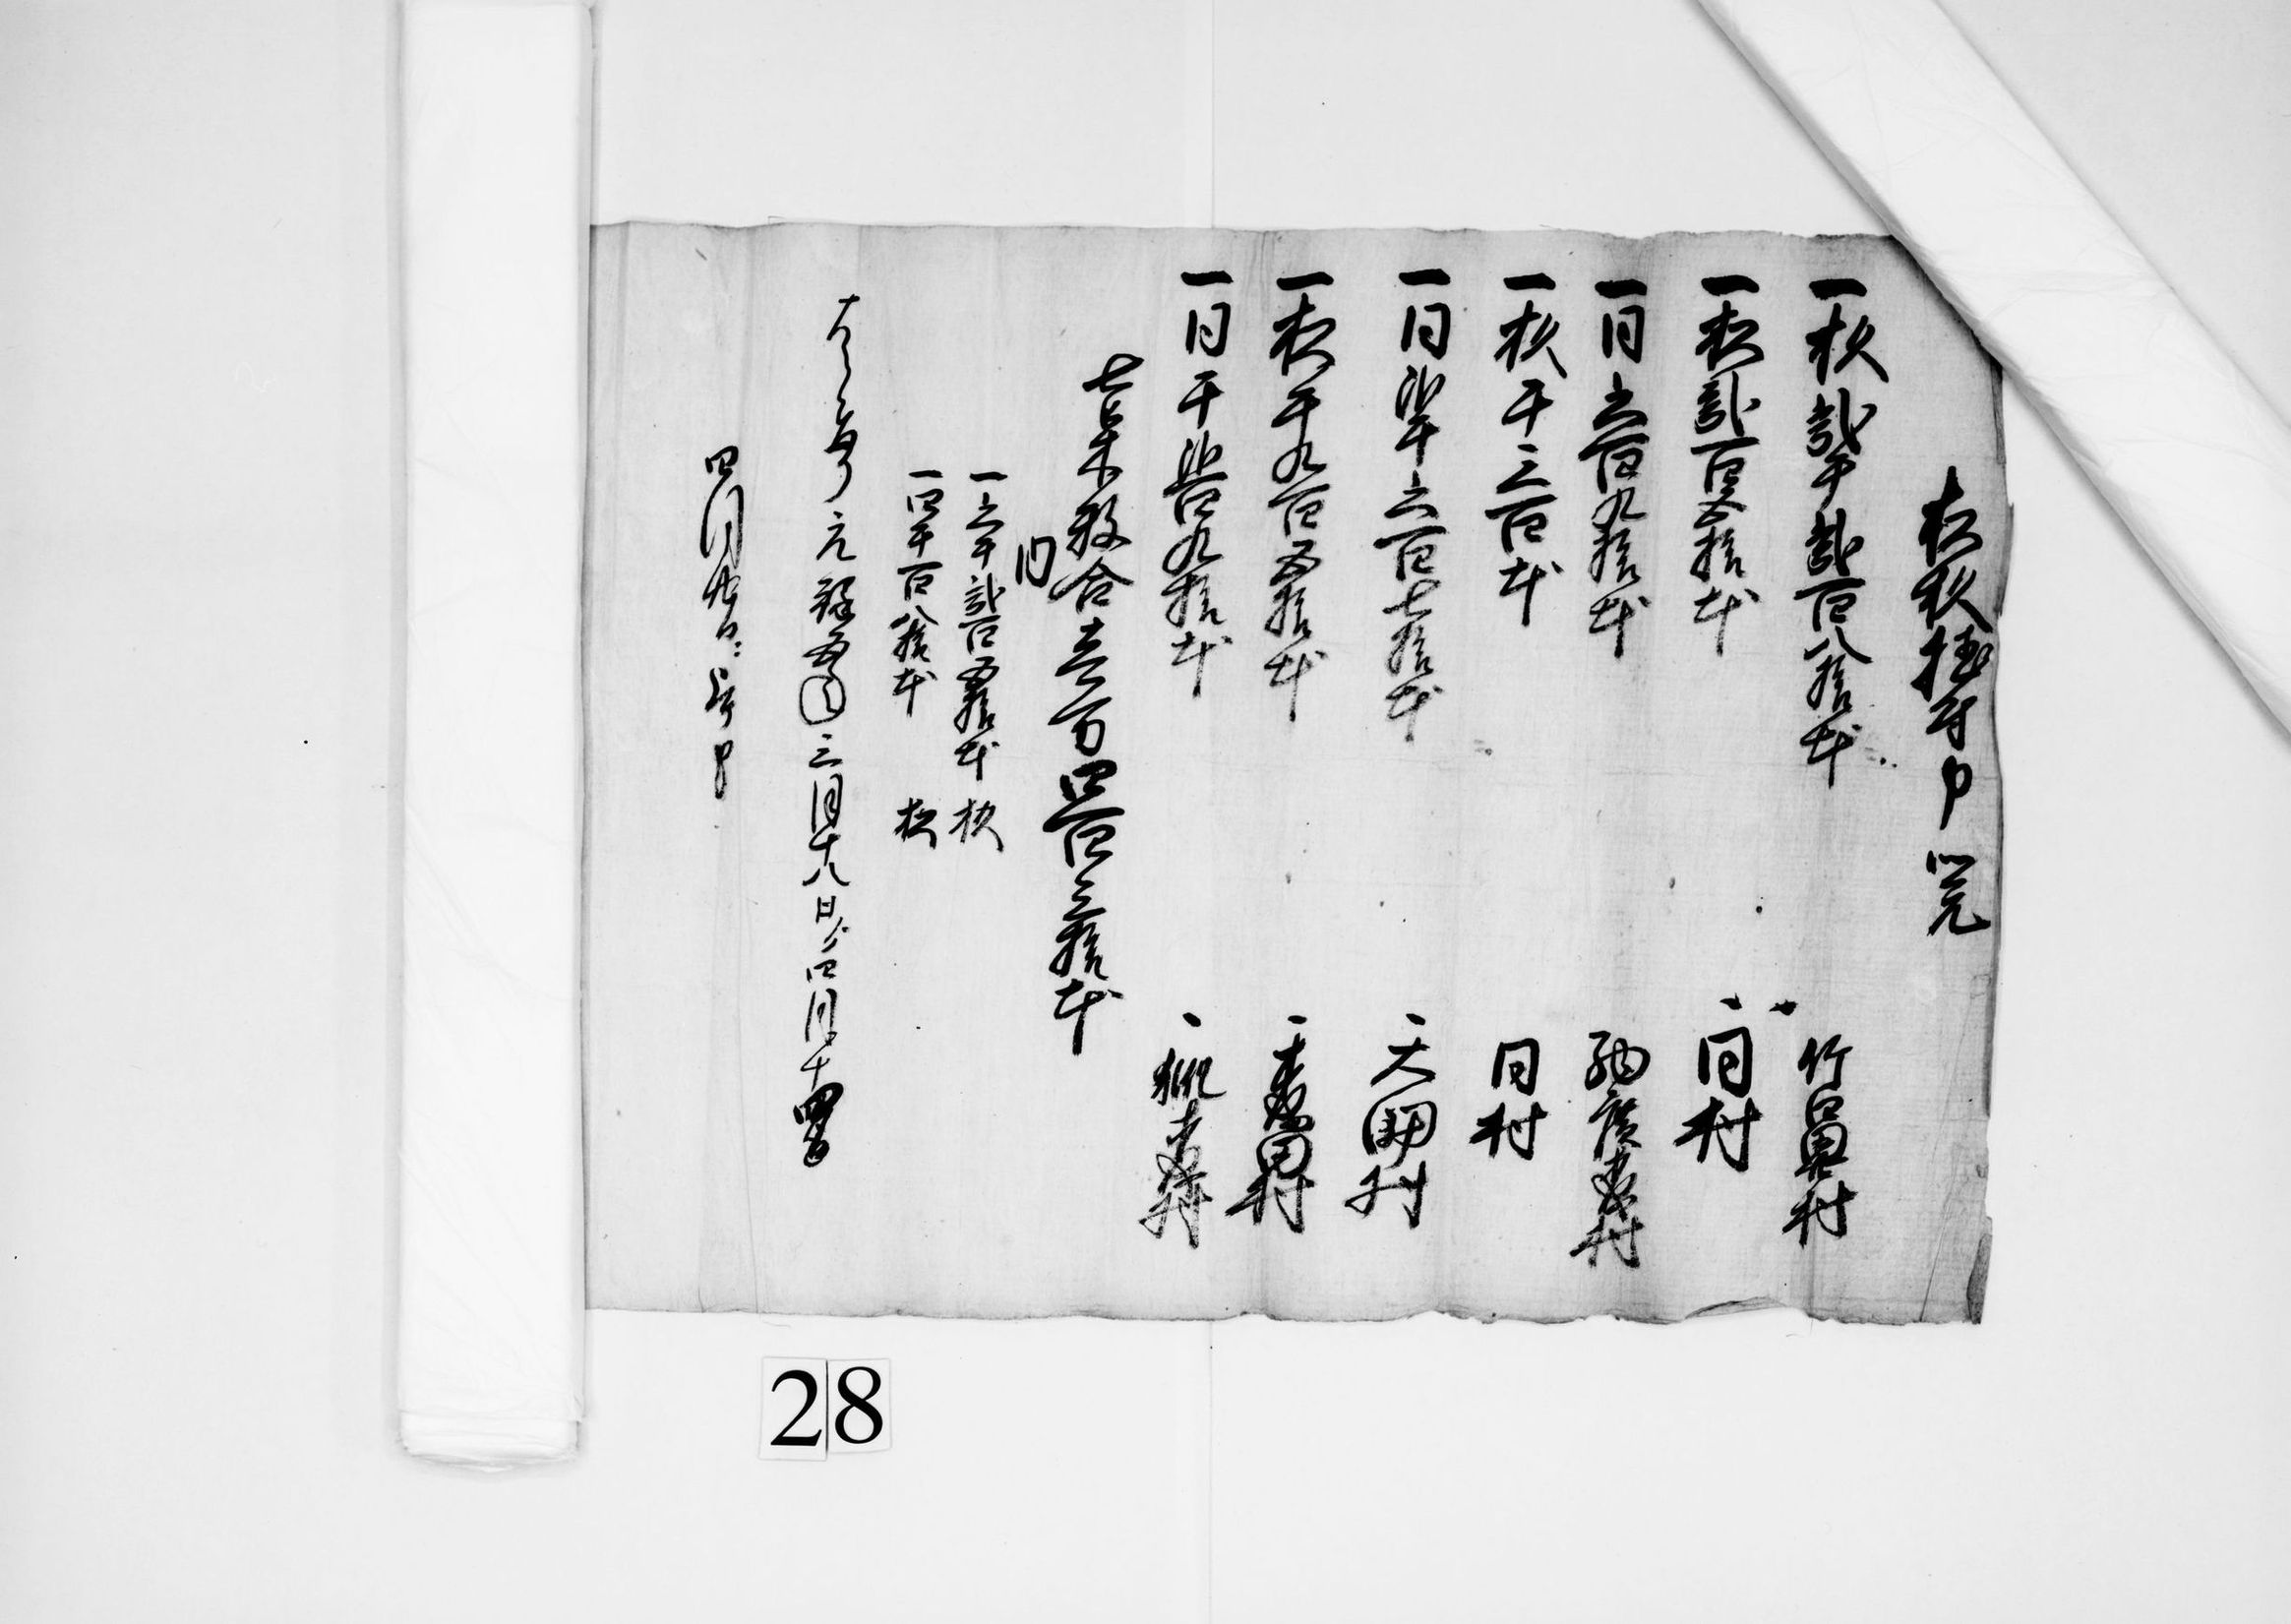 松杦植付申覚
一杦弐千弐百八拾本 竹鼻村
一松弐百五拾本 同村
一同六百九拾本 村
一杦千三百本 同村
一同弐千六百七拾本 大岡村
一松千九百五拾本 田村
一同千弐百九拾本 村
七口木数合壱万四百三拾本
内
一六千弐百五拾本 杦
一四千百八拾本 松
右之 元禄 三月十八日ゟ四月十四日
四月
28